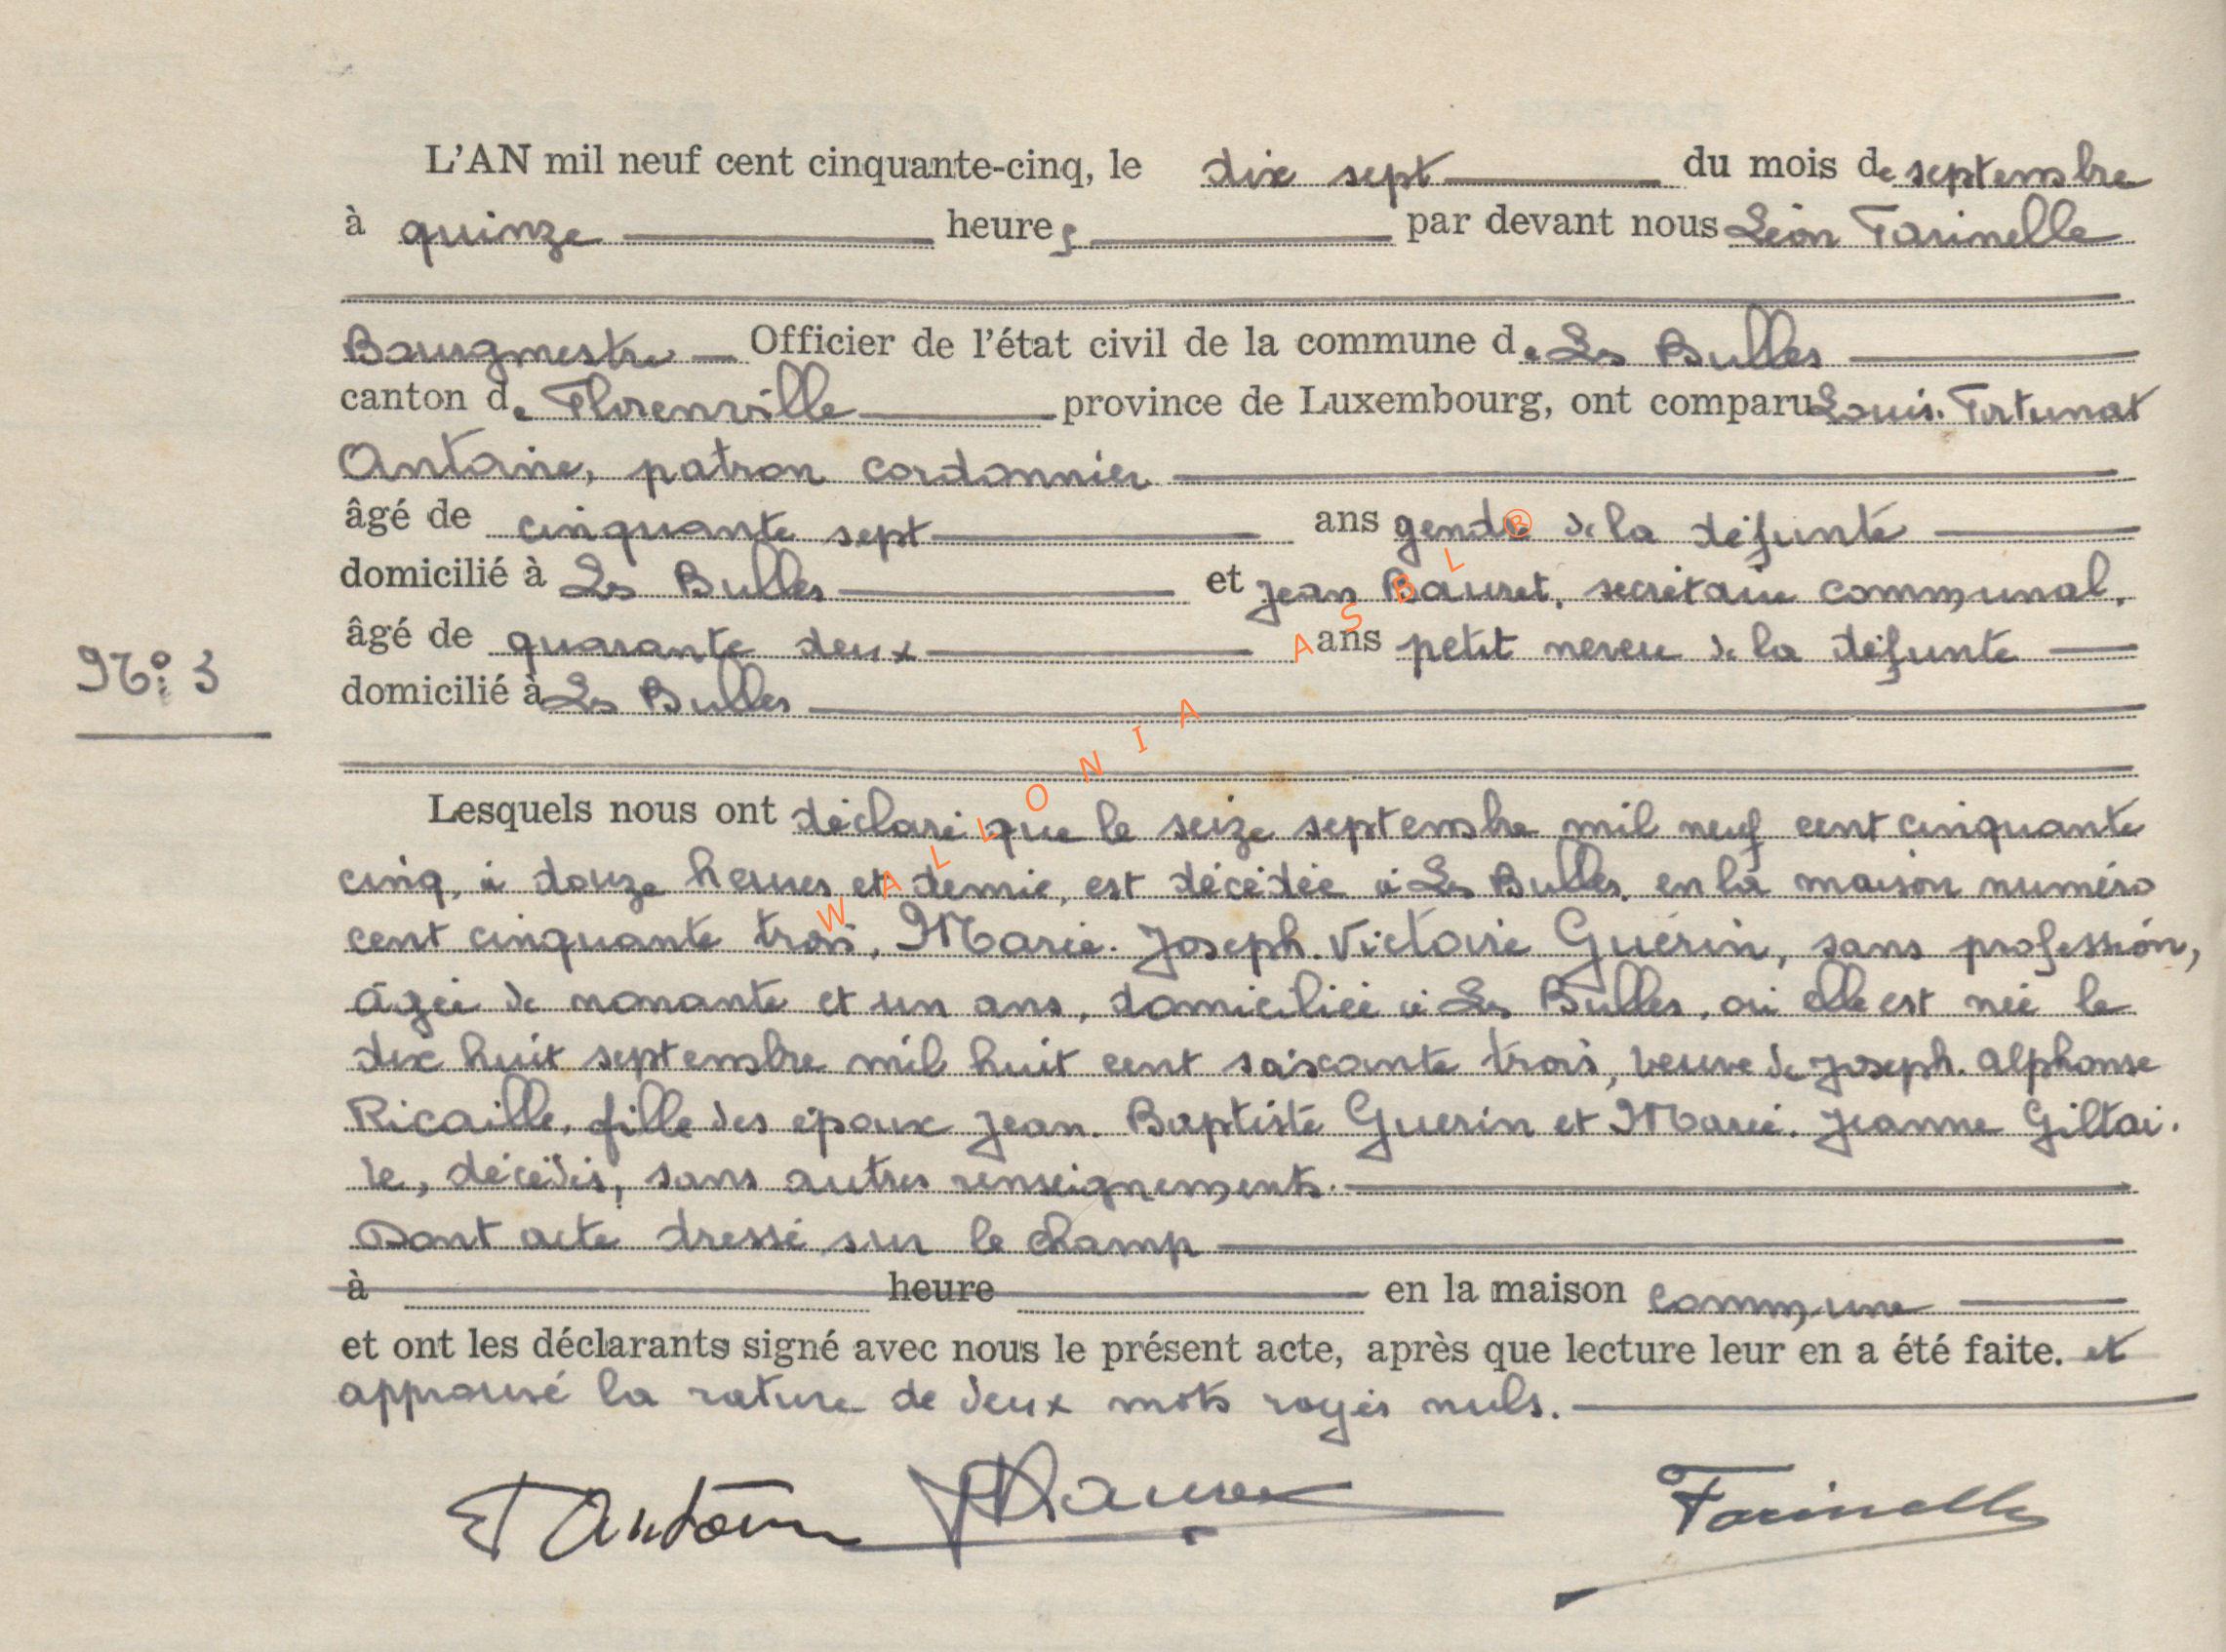 L'AN mil neuf cent cinquante-cinq, le dix sept du mois de septembre
à quinze heures par devant nous Léon Farinelle
Bourgmestre Officier de l'état civil de la commune de Les Bulles
canton de Florenville province de Luxembourg, ont comparu Louis. Fortunat
Antoine, patron cordonnier
âgé de cinquante sept ans gendre de la défunte
domicilié à Les Bulles et Jean Bauret, secrétaire communal,
âgé de quarante deux ans petit neveu de la défunte
N° 3
domicilié à Les Bulles
Lesquels nous ont déclaré que le seize septembre mil neuf cent cinquante
cinq, à douze heures et demie, est décédée à Les Bulles, en la maison numéro
cent cinquante trois, Marie. Joseph. Victoire Guérin, sans profession,
âgée de nonante et un ans, domiciliée à Les Bulles, où elle est née le
dix huit septembre mil huit cent soixante trois, veuve de Joseph. Alphonse
Ricaille, fille des époux Jean. Baptiste Guerin et Marie. Jeanne Giltai.
re, décédés, sans autres renseignements.
Dont acte dressé sur le champ
à heure en la maison commune
et ont les déclarants signé avec nous le présent acte, après que lecture leur en a été faite. et
approuvé la rature de deux mots rayés nuls.
F Antoine Farinelle
WALLONIA ASBL ®